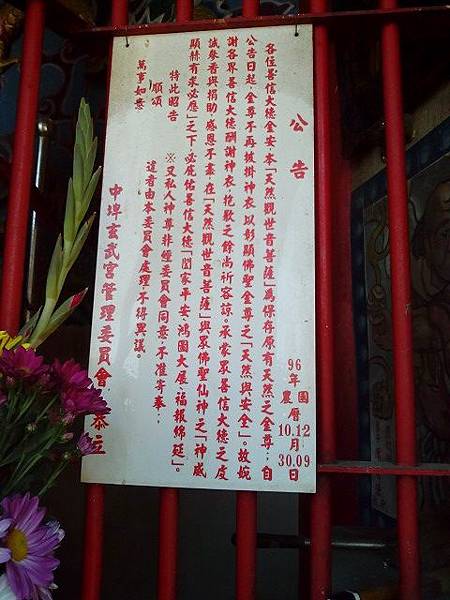 公告
各位善信大德金安本「天然觀世音菩薩」為保存原有天然之金尊；自
公告日起，金尊不再披掛神衣以彰顯佛聖金尊之「天然與安全」。故婉
謝各界善信大德酬謝神衣，抱歉之餘尚祈容諒。承蒙眾善信大德之虔
誠參香與捐助感恩不盡在「天然觀世音菩薩」與眾佛聖仙神之「神威
顯赫有求必應」之下必庇佑善信大德「閤家平安、鴻圖大展、福報綿延」。
特此昭告
順頌
萬事如意
※又私人神尊非經委員會同意，不准寄奉；
違者由本委員會處理，不得異議。
中埤玄武宮管理委員會 恭立
96年 農曆 國曆 10.12月 30.09日